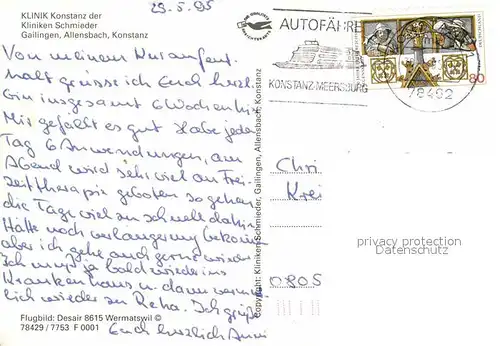 KLINIK Konstanz der
Kliniken Schmieder
Gailingen, Allensbach, Konstanz
29.5.95
Von meinem Kuraufent-
halt grüsse ich Euch herzl.
Bin insgesamt 6 Wochen hier
Mir gefällt es gut Habe jeden
Tag 6 Anwendungen, am
Abend wird sehr viel an Frei-
zeittherapie geboten so gehen
die Tage viel zu schnell dahin
Hätte noch verlängerung bekommen
aber ich gehe auch gerne wieder
Ich muß ja bald wieder ins
Krankenhaus u. dann
lich wieder zu Reha. Ich grüße
Euch herzlich Anni
Flugbild: Desair 8615 Wermatswil ©
78429 / 7753 F 0001
Copyright: Kliniken Schmieder, Gailingen, Allensbach, Konstanz
AUTOFÄHRE
KONSTANZ-MEERSBURG
DEUTSCHLAND
80
78462
Chri
Krei
OROS
privacy protection
Datenschutz